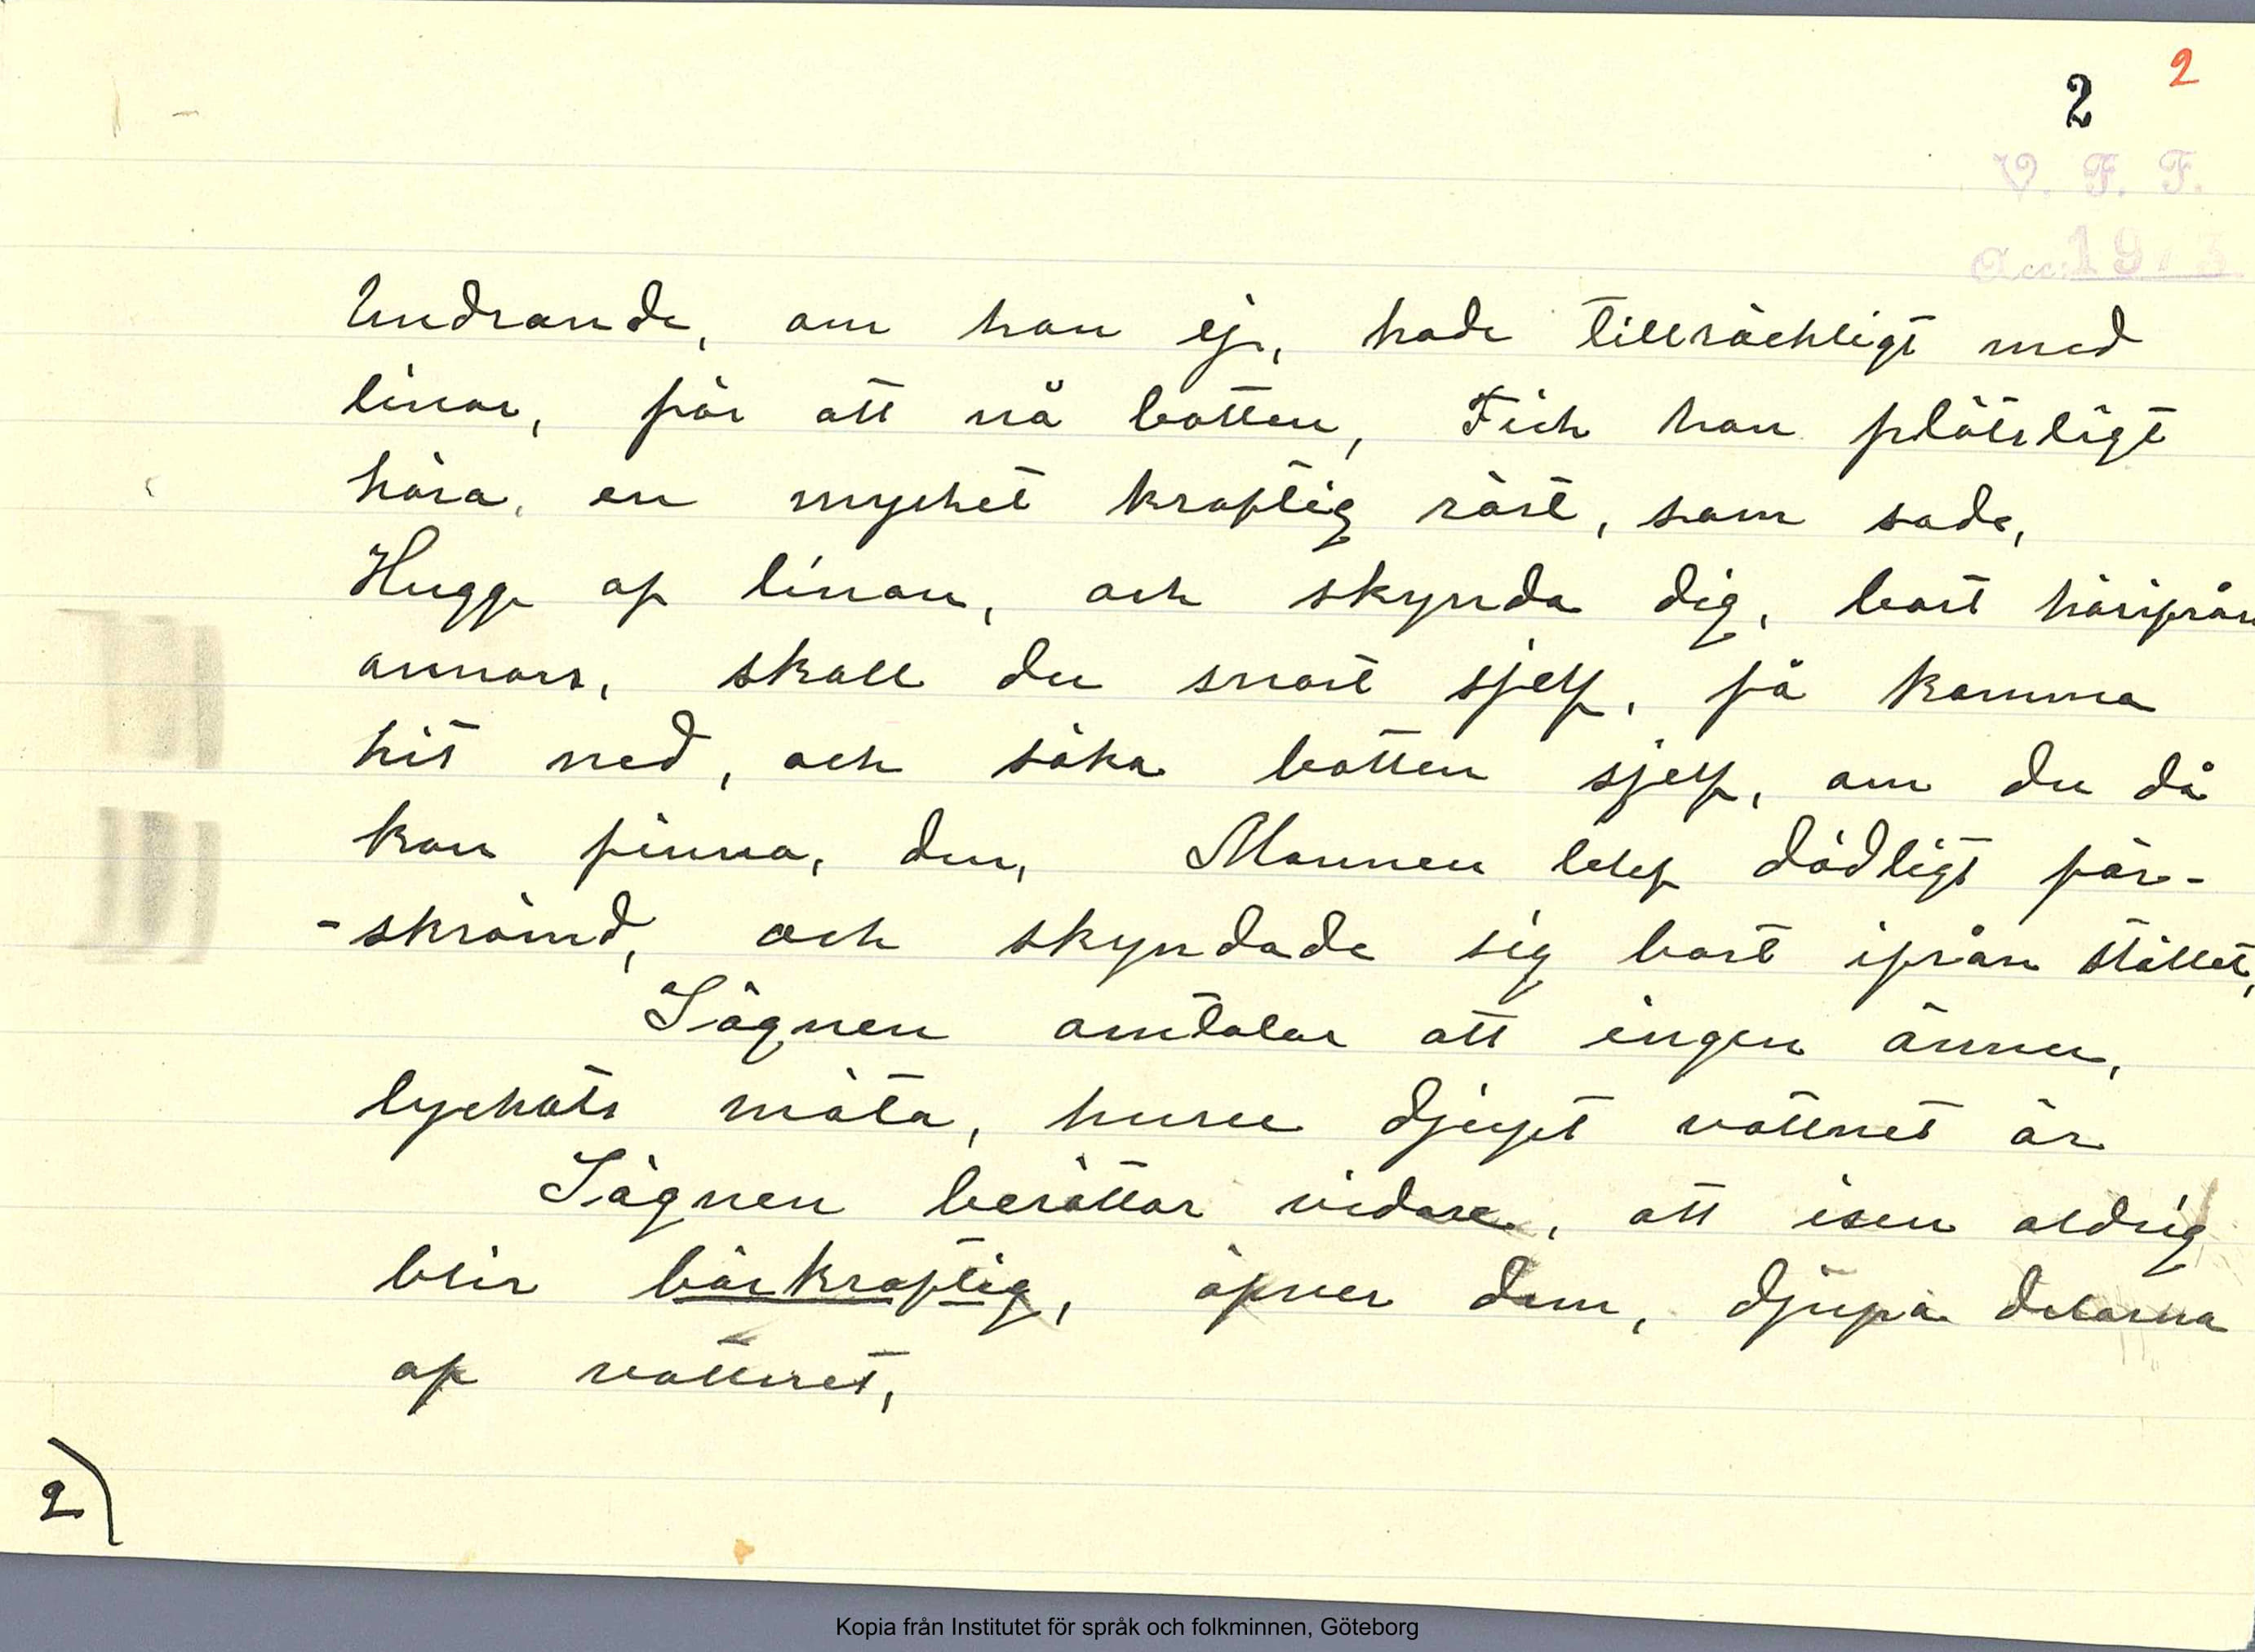 2 2
V. F. F.
Undrande, om han ej, hade tillräckligt med
linor, för att nå botten, Fick han plötsligt
höra, en mycket kraftig röst, som sade,
Hugg af linan, och skynda dig, bort härifrån
annars, skall du snart sjelf, få komma
hit ned, och söka botten sjelf, om du då
kan finna, den, Mannen blef dödligt för-
-skrämd, och skyndade sig bort ifrån stället,
Sägnen omtalar att ingen ännu,
lyckats mäta, huru djupt vattnet är
Sägnen berättar vidare, att isen aldrig
blir bärkraftig, öfver dem, djupa delarna
af vattnet,
2)
Kopia från Institutet för språk och folkminnen, Göteborg